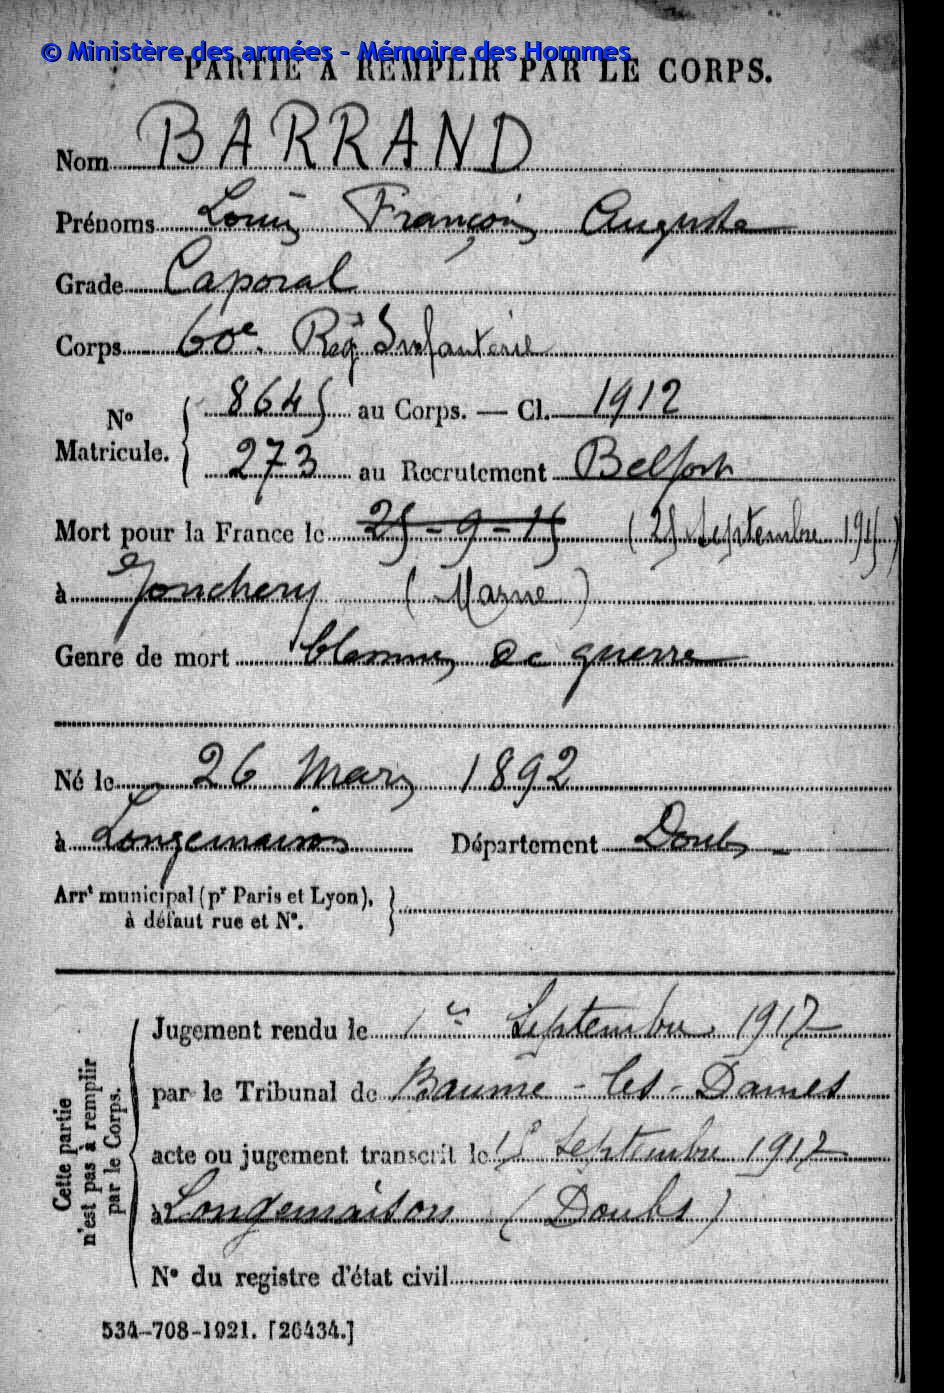 © Ministère des armées - Mémoire des Hommes
PARTIE A REMPLIR PAR LE CORPS.
Nom BARRAND
Prénoms Louis François Auguste
Grade Caporal
Corps 60e. Rég Infanterie
No
Matricule.
8645 au Corps. — Cl. 1912
273 au Recrutement Belfort
Mort pour la France le 25-9-15 (25 Septembre 1915)
à Jonchery (Marne)
Genre de mort blessures de guerre
Né le 26 Mars 1892
à Longemaison Département Doubs -
Arrt municipal (pr Paris et Lyon),
à défaut rue et No.
Cette partie
n'est pas à remplir
par le Corps.
Jugement rendu le 1er Septembre 1917
par le Tribunal de Baume-les-Dames
acte ou jugement transcrit le Septembre 1917
à Longemaison (Doubs)
No du registre d'état civil
534-708-1921. [26434.]